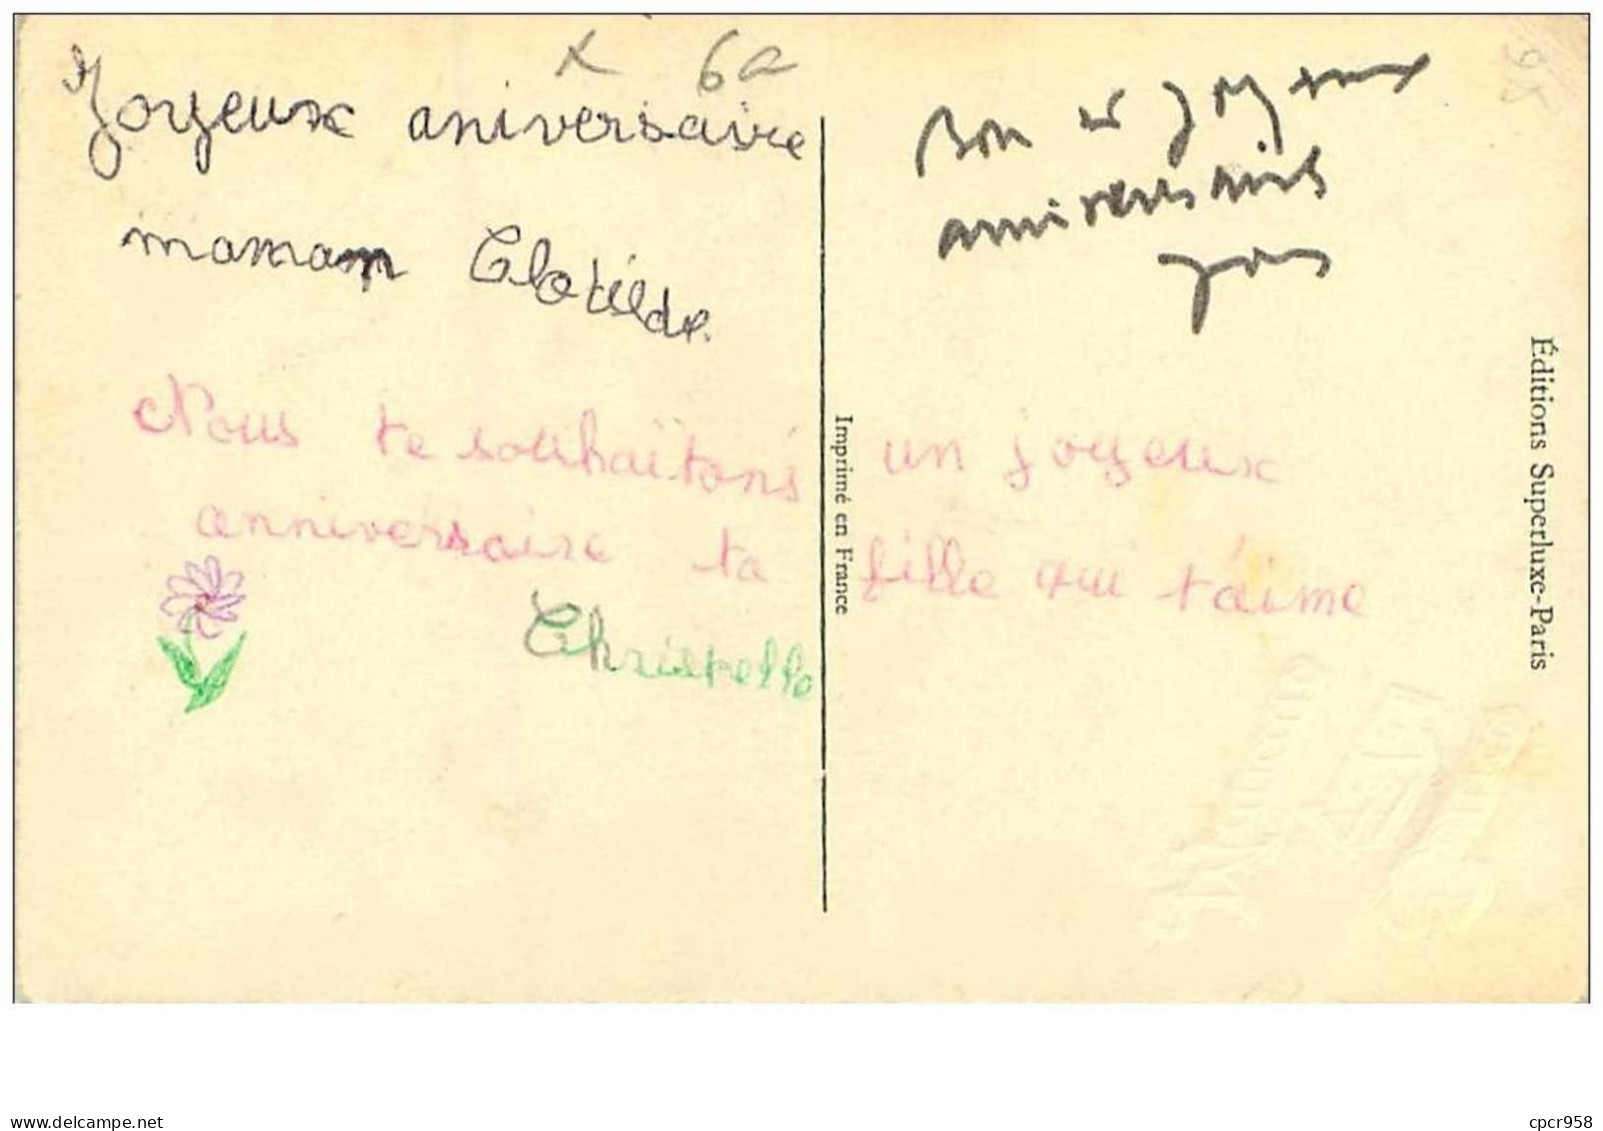 x 6a
Joyeux aniversaire
maman Clotilde.
Nous te souhaîtons un joyeux
anniversaire ta fille qui t'aime
Christelle
Bon et joyeux
anniversaire
95
Imprimé en France
Éditions Superluxe-Paris
delcampe.net
cpcr958